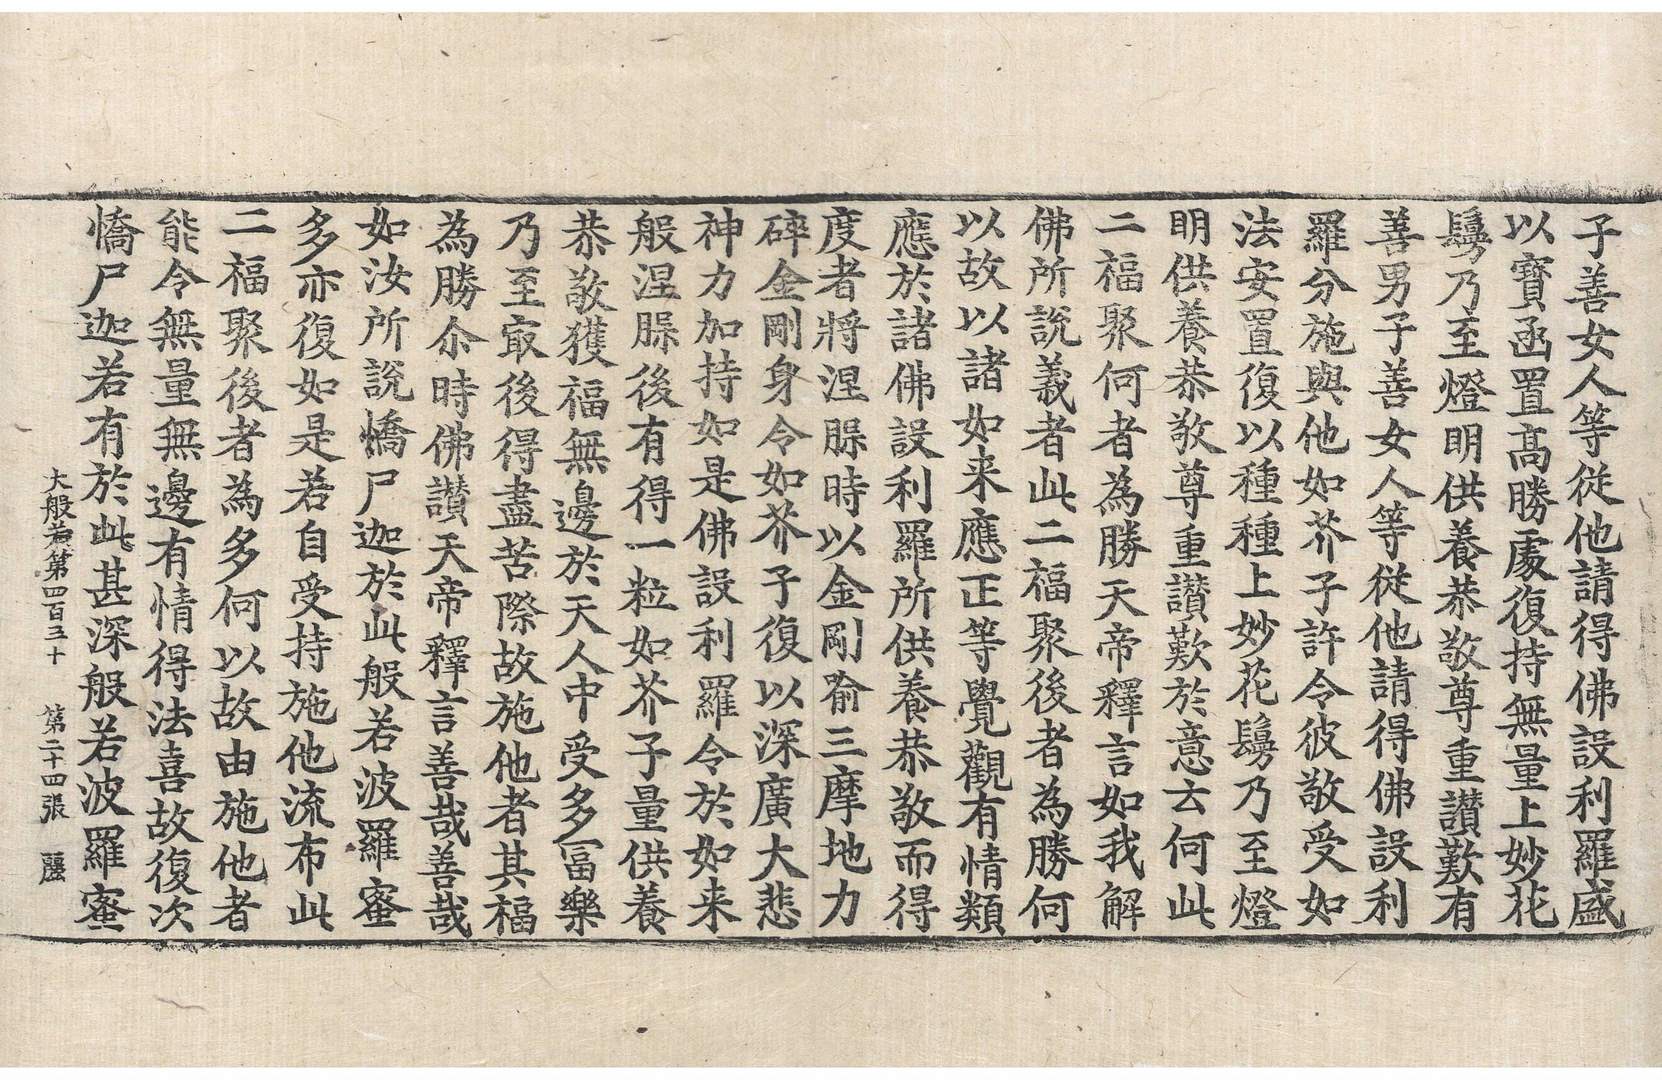 子善女人等從他請得佛設利羅盛
以寶函置高勝處復持無量上妙花
鬘乃至燈明供養恭敬尊重讚歎有
善男子善女人等從他請得佛設利
羅分施與他如芥子許令彼敬受如
法安置復以種種上妙花鬘乃至燈
明供養恭敬尊重讚歎於意云何此
二福聚何者為勝天帝釋言如我解
佛所說義者此二福聚後者為勝何
以故以諸如来應正等覺觀有情類
應於諸佛設利羅所供養恭敬而得
度者將涅脲時以金剛喻三摩地力
碎金剛身令如芥子復以深廣大悲
神力加持如是佛設利羅令於如来
般涅脲後有得一粒如芥子量供養
恭敬獲福無邊於天人中受多冨樂
乃至㝡後得盡苦際故施他者其福
為勝尒時佛讚天帝釋言善哉善哉
如汝所說憍尸迦於此般若波羅蜜
多亦復如是若自受持施他流布此
二福聚後者為多何以故由施他者
能令無量無邊有情得法喜故復次
憍尸迦若有於此甚深般若波羅蜜
大般若第四百五十　第二十四張　𪋛